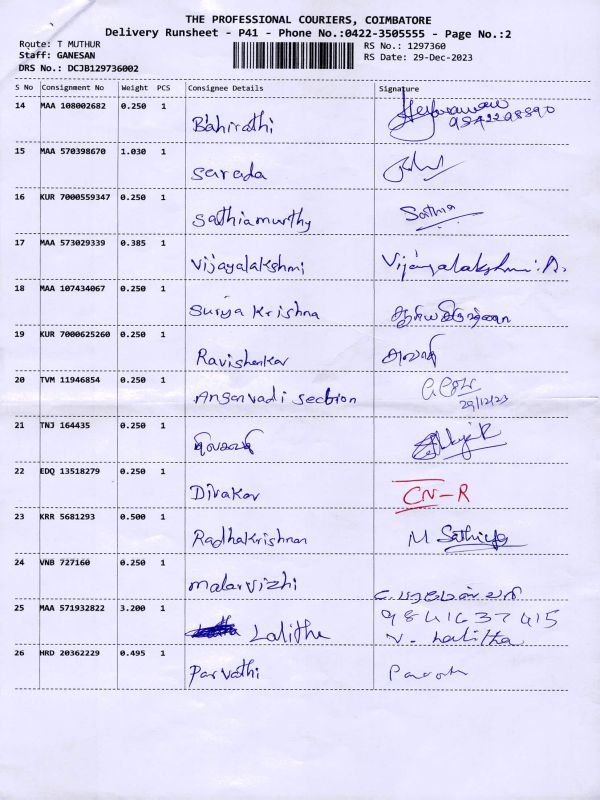 THE PROFESSIONAL COURIERS, COIMBATORE
Delivery Runsheet - P41 - Phone No.:0422-3505555 - Page No.:2
Route: T MUTHUR
RS No.: 1297360
Staff: GANESAN
RS Date: 29-Dec-2023
DRS No.: DCJB129736002
S No Consignment No Weight PCS Consignee Details Signature
14 MAA 108002682 0.250 1 Bahirathi 9842298890
15 MAA 570398670 1.030 1 Sarada
16 KUR 7000559347 0.250 1 Sathiamurthy Sathia
17 MAA 573029339 0.385 1 Vijayalakshmi Vijayalakshmi.A.
18 MAA 107434067 0.250 1 Surya Krishna
19 KUR 7000625260 0.250 1 Ravishankar
20 TVM 11946854 0.250 1 Anganvadi Section 29/12/23
21 TNJ 164435 0.250 1
22 EDQ 13518279 0.250 1 Divakar CN-R
23 KRR 5681293 0.500 1 Radhakrishnan M Sathiya
24 VNB 727160 0.250 1 Malarvizhi
25 MAA 571932822 3.200 1 Lalitha 9841637415
V. Lalitha
26 HRD 20362229 0.495 1 Parvathi